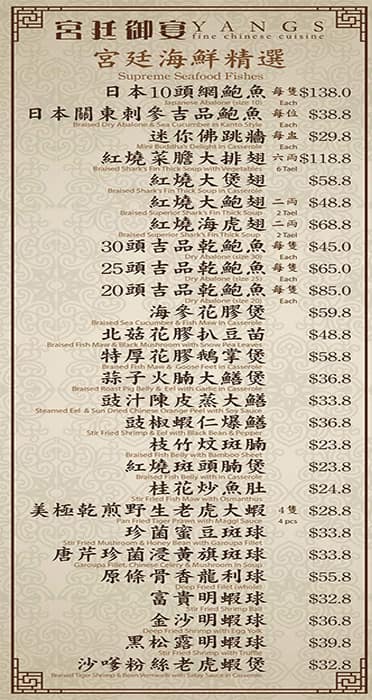 宮廷御宴 YANGS
fine chinese cuisine
宮廷海鮮精選
Supreme Seafood Fishes
日本10頭網鮑魚 每隻 $138.0
Japanese Abalone (size 10) Each
日本關東刺參吉品鮑魚 每位 $38.8
Braised Dry Abalone & Sea Cucumber in Kanto Style Each
迷你佛跳牆 每盅 $29.8
Mini Buddha's Delight in Casserole Each
紅燒菜膽大排翅 六両 $118.8
Braised Shark's Fin Thick Soup with Vegetables 6 Tael
紅燒大煲翅 $58.8
Braised Shark's Fin Thick Soup in Casserole
紅燒大鮑翅 二両 $48.8
Braised Superior Shark's Fin Thick Soup 2 Tael
紅燒海虎翅 二両 $68.8
Braised Superior Shark's Fin Thick Soup 2 Tael
30頭吉品乾鮑魚 每隻 $45.0
Dry Abalone (size 30) Each
25頭吉品乾鮑魚 每隻 $65.0
Dry Abalone (size 25) Each
20頭吉品乾鮑魚 每隻 $85.0
Dry Abalone (size 20) Each
海參花膠煲 $59.8
Braised Sea Cucumber & Fish Maw in Casserole
北菇花膠扒豆苗 $48.8
Braised Fish Maw & Black Mushroom with Snow Pea Leaves
特厚花膠鵝掌煲 $58.8
Braised Fish Maw & Goose Feet in Casserole
蒜子火腩大鱔煲 $36.8
Braised Roast Pig Belly & Eel with Garlic in Casserole
豉汁陳皮蒸大鱔 $33.8
Steamed Eel & Sun Dried Chinese Orange Peel with Soy Sauce
豉椒蝦仁爆鱔 $36.8
Stir Fried Shrimp & Eel with Black Bean & Pepper
枝竹炆斑腩 $23.8
Braised Fish Belly with Bamboo Sheet
紅燒斑頭腩煲 $23.8
Braised Fish Belly with in Casserole
桂花炒魚肚 $24.8
Stir Fried Fish Maw with Osmanthus
美極乾煎野生老虎大蝦 4隻 $28.8
Pan Fried Tiger Prawn with Maggi Sauce 4 pcs
珍菌蜜豆斑球 $33.8
Stir Fried Mushroom & Honey Bean with Garoupa Fillet
唐芹珍菌浸黃旗斑球 $33.8
Garoupa Fillet, Chinese Celery & Mushroom In Soup
原條骨香龍利球 $55.8
Deep Fried Filet (whole)
富貴明蝦球 $32.8
Stir Fried Shrimp Ball
金沙明蝦球 $36.8
Deep Fried Shrimp with Egg Yolk
黑松露明蝦球 $39.8
Stir Fried Shrimp with Truffle
沙嗲粉絲老虎蝦煲 $32.8
Braised Tiger Shrimp & Bean Vermicelli with Satay Sauce in Casserole